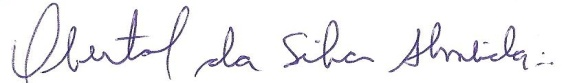 Obertal da Silva Almeida